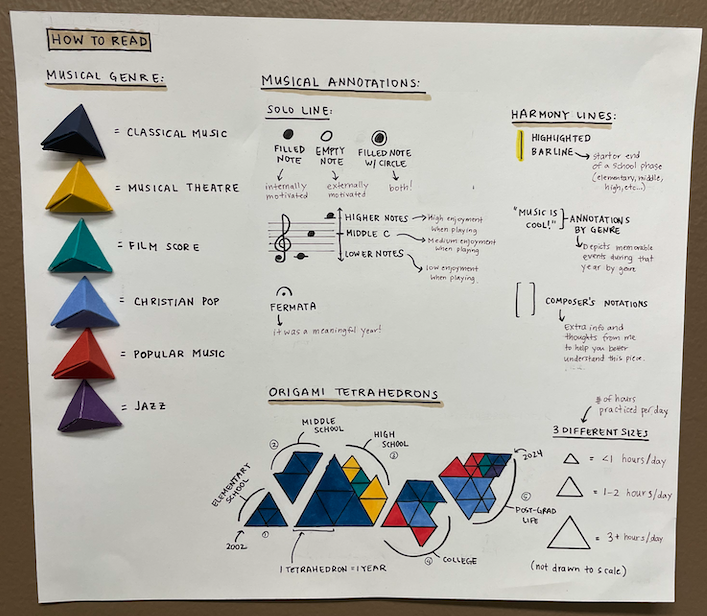 HOW TO READ
MUSICAL GENRE:
= CLASSICAL MUSIC
= MUSICAL THEATRE
= FILM SCORE
= CHRISTIAN POP
= POPULAR MUSIC
= JAZZ
MUSICAL ANNOTATIONS:
SOLO LINE:
FILLED
NOTE
internally
motivated
EMPTY
NOTE
externally
motivated
FILLED NOTE
W/ CIRCLE
both!
HIGHER NOTES
High enjoyment
when playing
MIDDLE C
Medium enjoyment
when playing
LOWER NOTES
low enjoyment
when playing.
FERMATA
it was a meaningful year!
HARMONY LINES:
HIGHLIGHTED
BARLINE
start or end
of a school phase
(elementary, middle,
high, etc...)
"MUSIC IS
COOL!"
ANNOTATIONS
BY GENRE
Depicts memorable
events during that
year by genre
[ ] COMPOSER'S NOTATIONS
Extra info and
thoughts from me
to help you better
understand this piece.
ORIGAMI TETRAHEDRONS
ELEMENTARY
SCHOOL
2002
1
MIDDLE
SCHOOL
2
HIGH
SCHOOL
3
1 TETRAHEDRON = 1 YEAR
4
COLLEGE
2024
5
POST-GRAD
LIFE
# of hours
practiced per day
3 DIFFERENT SIZES
= <1 hours/day
= 1-2 hours/day
= 3+ hours/day
(not drawn to scale)